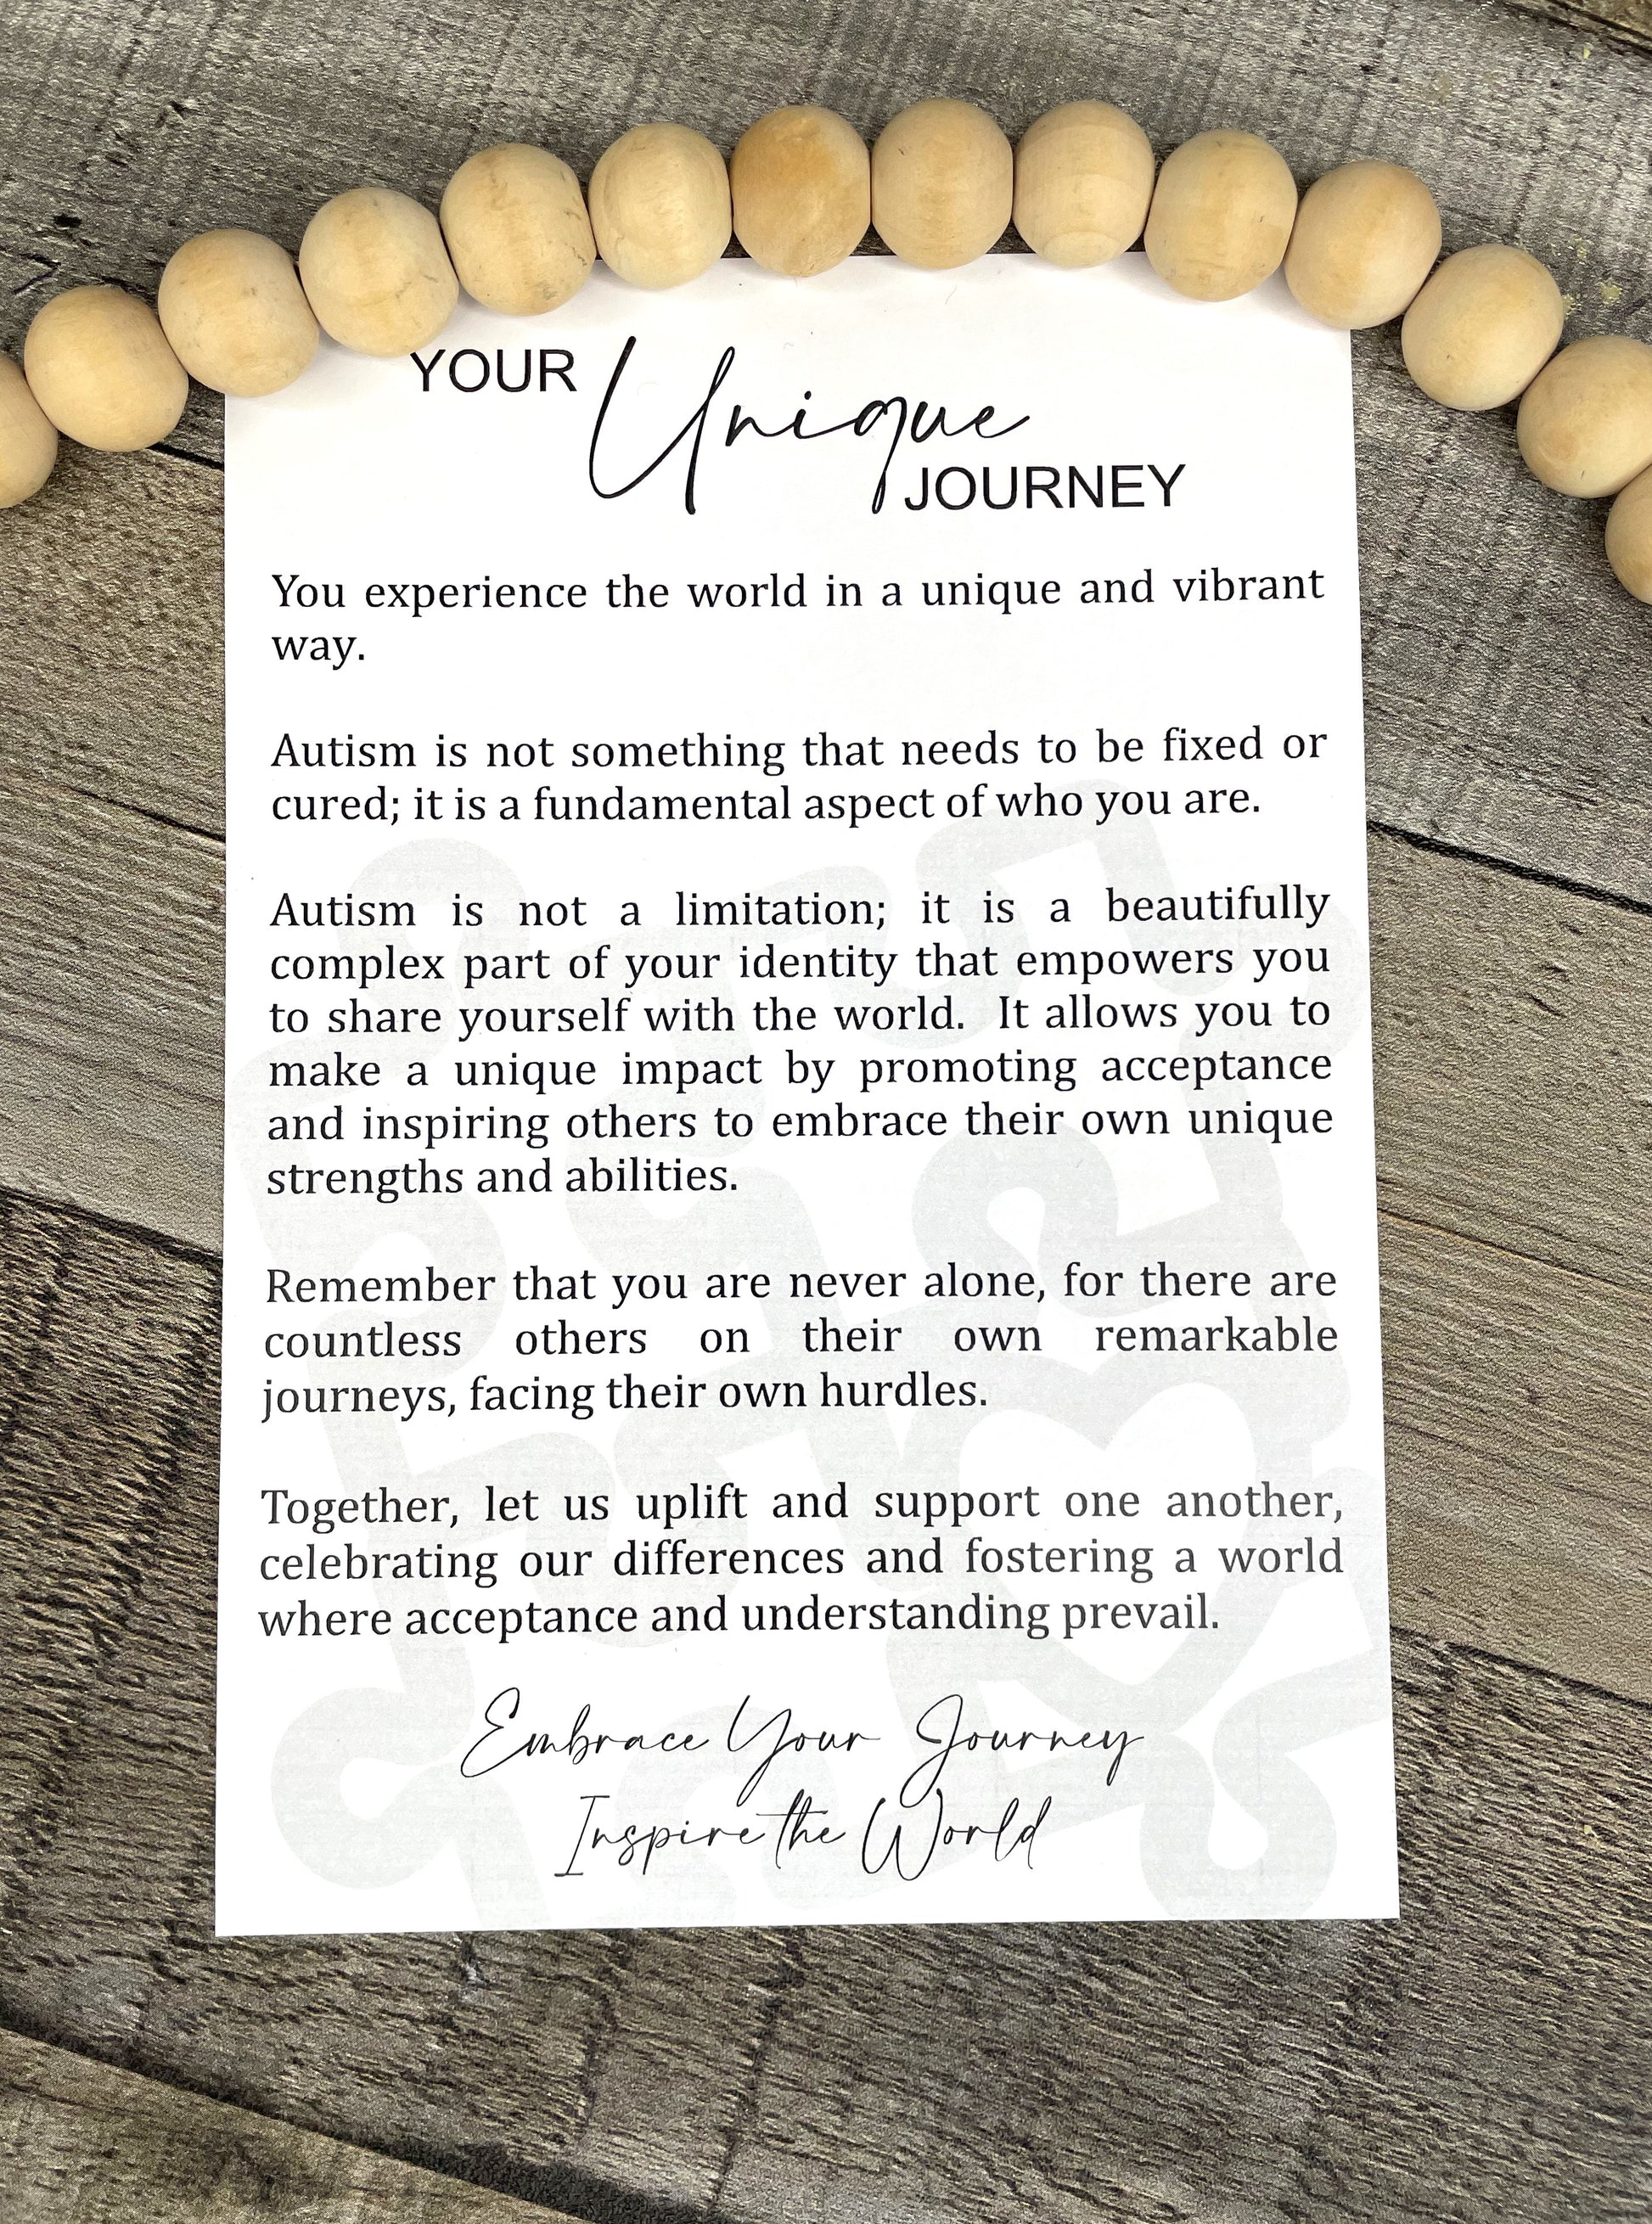 YOUR Unique
JOURNEY
You experience the world in a unique and vibrant
way.
Autism is not something that needs to be fixed or
cured; it is a fundamental aspect of who you are.
Autism is not a limitation; it is a beautifully
complex part of your identity that empowers you
to share yourself with the world. It allows you to
make a unique impact by promoting acceptance
and inspiring others to embrace their own unique
strengths and abilities.
Remember that you are never alone, for there are
countless others on their own remarkable
journeys, facing their own hurdles.
Together, let us uplift and support one another,
celebrating our differences and fostering a world
where acceptance and understanding prevail.
Embrace Your Journey
Inspire the World